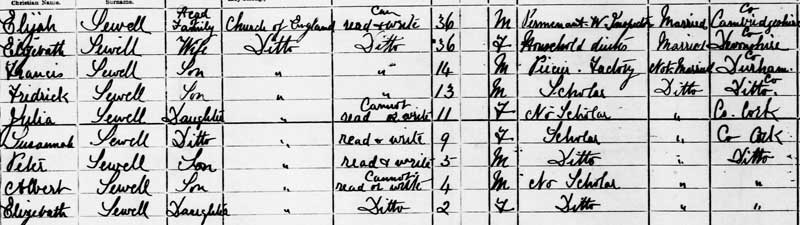 Christian Name. Surname.
Elijah Sewell Head Family Church of England Can read & write 36 M Permenant W. Inspector Married Co Cambridgeshire
Elizebath Sewell Wife Ditto Ditto 36 F Household duties Married Co Devonshire
Francis Sewell Son " " 14 M Factory Not Married Co Durham
Fredrick Sewell Son " " 13 M Scholar Ditto Ditto Co
Julia Sewell Daughter " Cannot read or write 11 F No Scholar " Co. Cork
Susannah Sewell Ditto " read & write 9 F Scholar " Co Cork
Peter Sewell Son " read & write 5 M Ditto " Ditto
Albert Sewell Son " Cannot read or write 4 M No Scholar " "
Elizebath Sewell Daughter " Ditto 2 F Ditto " "